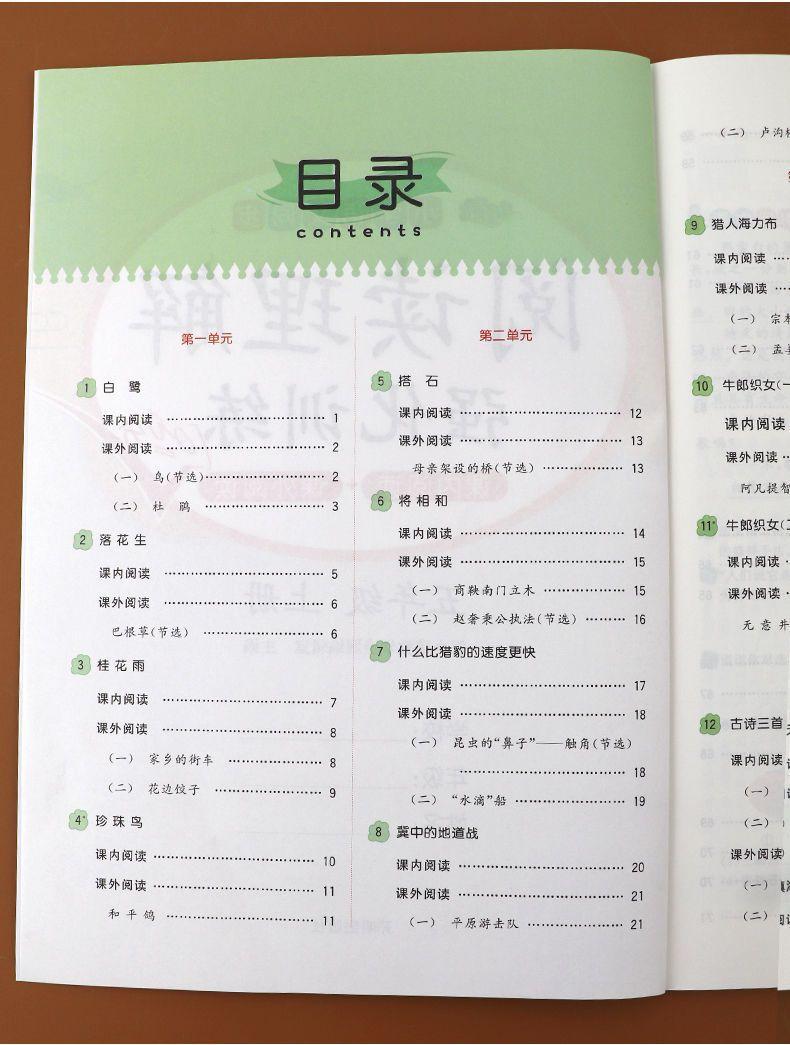 目录
contents
第一单元
1 白 鹭
课内阅读 ………… 1
课外阅读 ………… 2
（一） 鸟(节选)………… 2
（二） 杜 鹃 ………… 3
2 落花生
课内阅读 ………… 5
课外阅读 ………… 6
巴根草(节选) ………… 6
3 桂花雨
课内阅读 ………… 7
课外阅读 ………… 8
（一） 家乡的街车 ………… 8
（二） 花边饺子 ………… 9
4* 珍珠鸟
课内阅读 ………… 10
课外阅读 ………… 11
和平鸽 ………… 11
第二单元
5 搭 石
课内阅读 ………… 12
课外阅读 ………… 13
母亲架设的桥(节选) ………… 13
6 将相和
课内阅读 ………… 14
课外阅读 ………… 15
（一） 商鞅南门立木 ………… 15
（二） 赵奢秉公执法(节选) ………… 16
7 什么比猎豹的速度更快
课内阅读 ………… 17
课外阅读 ………… 18
（一） 昆虫的“鼻子”——触角(节选)
………… 18
（二） “水滴”船 ………… 19
8 冀中的地道战
课内阅读 ………… 20
课外阅读 ………… 21
（一） 平原游击队 ………… 21
（二） 卢沟
9 猎人海力布
课内阅读 …
课外阅读 …
（一） 宗
（二） 孟
10 牛郎织女(
课内阅读
课外阅读 …
阿凡提智
11* 牛郎织女(
课内阅读 …
课外阅读 …
无意井
12 古诗三首
课内阅读
（一）
（二）
课外阅读
（一）
（二）